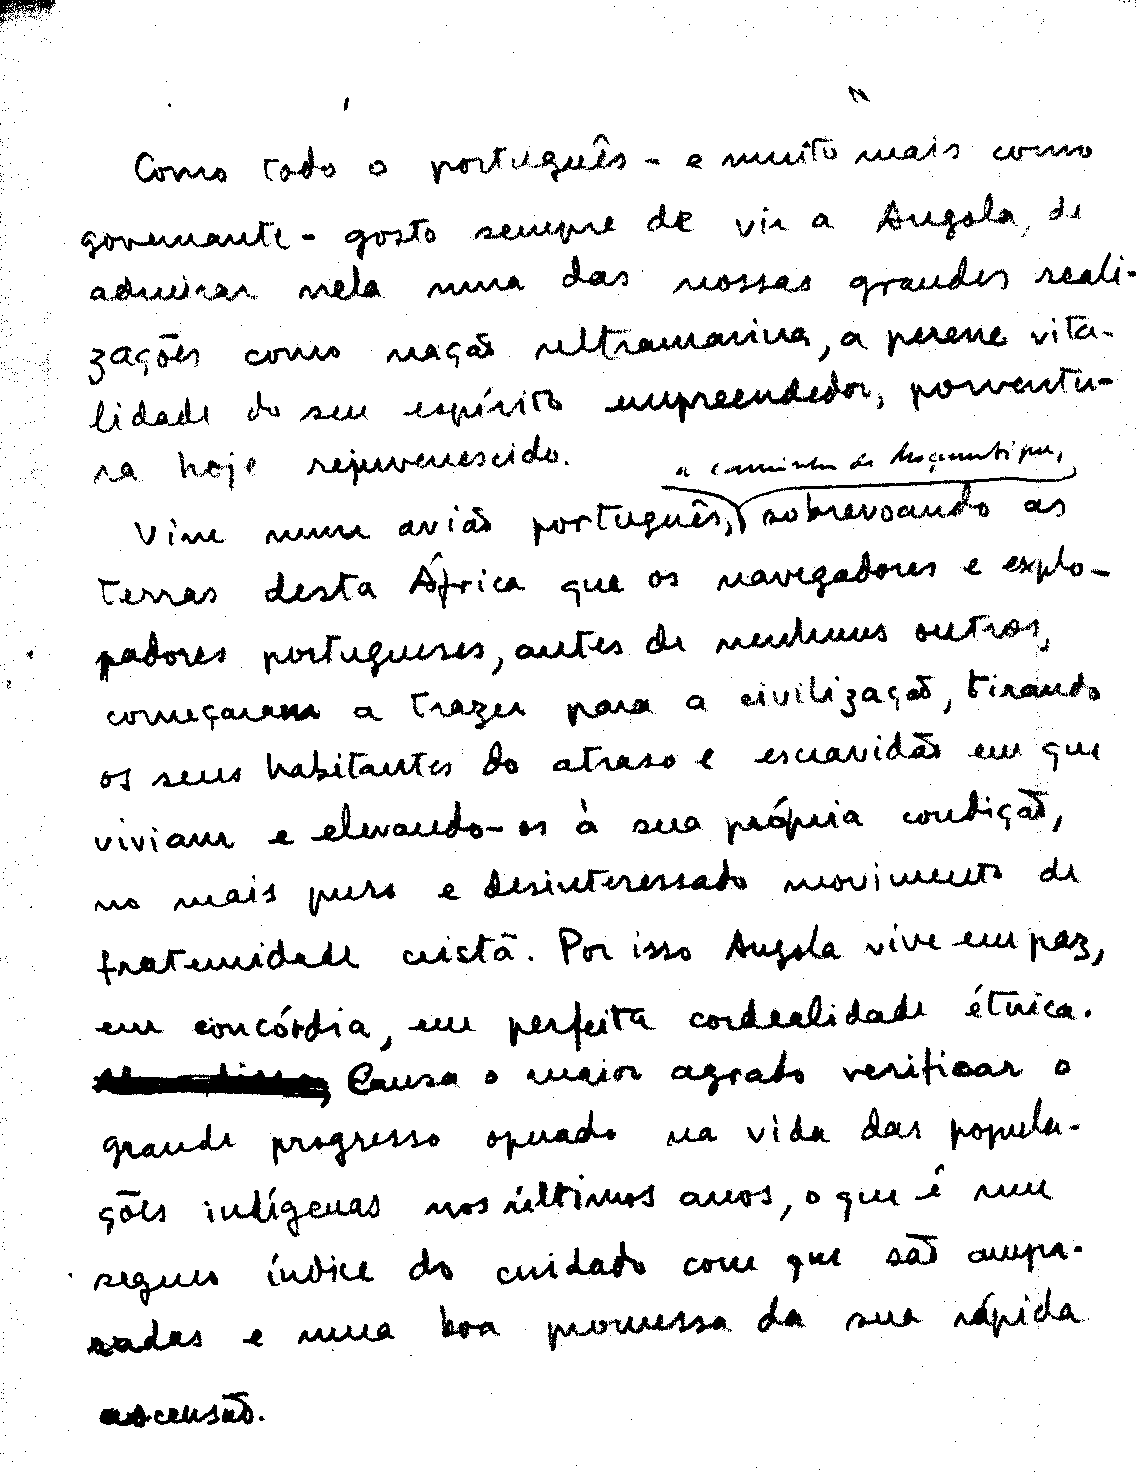 Como todo o português - e muito mais como
governante - gosto sempre de vir a Angola, de
admirar nela uma das nossas grandes reali-
zações como nação ultramarina, a perene vita-
lidade do seu espírito empreendedor, porventu-
ra hoje rejuvenescido.
a caminho de Moçambique,
Vim num avião português, sobrevoando as
terras desta África que os navegadores e explo-
radores portugueses, antes de nenhuns outros,
começaram a trazer para a civilização, tirando
os seus habitantes do atraso e escravidão em que
viviam e elevando-os à sua própria condição,
no mais puro e desinteressado movimento de
fraternidade cristã. Por isso Angola vive em paz,
em concórdia, em perfeita cordealidade étnica.
Causa o maior agrado verificar o
grande progresso operado na vida das popula-
ções indígenas nos últimos anos, o que é um
seguro índice do cuidado com que são ampa-
radas e uma boa promessa da sua rápida
ascensão.